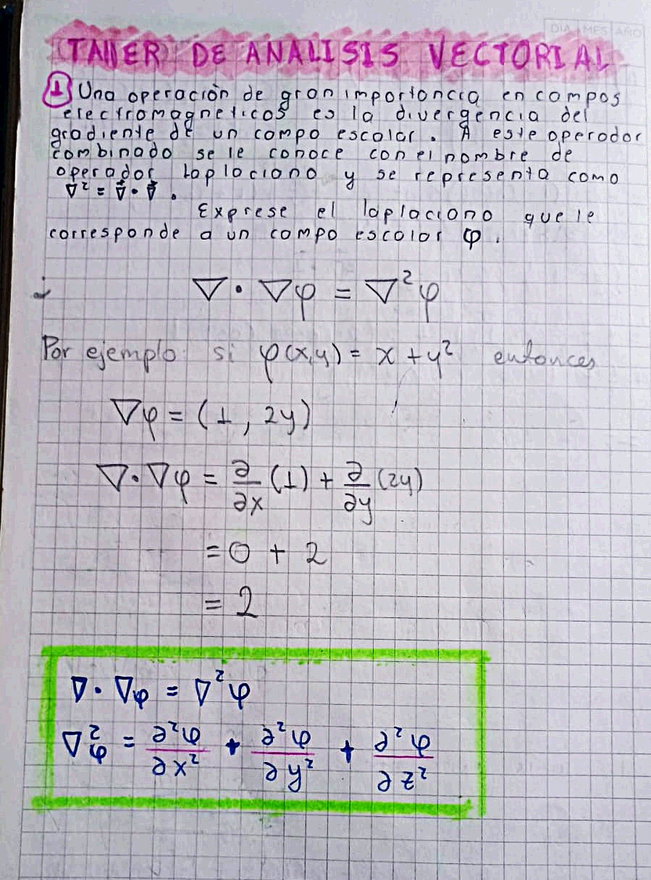 DIA MES AÑO
TALLER DE ANALISIS VECTORIAL
1 Una operación de gran importancia en campos
electromagneticos es la divergencia del
gradiente de un campo escalar. A este operador
combinado se le conoce con el nombre de
operador laplaciano y se representa como
∇² = ∇⃗ · ∇⃗ .
Exprese el laplaciano que le
corresponde a un campo escalar φ.
∇ · ∇φ = ∇²φ
Por ejemplo: si φ(x,y) = x + y² entonces
∇φ = (1, 2y)
∇ · ∇φ = ∂/∂x (1) + ∂/∂y (2y)
= 0 + 2
= 2
∇ · ∇φ = ∇²φ
∇²φ = ∂²φ/∂x² + ∂²φ/∂y² + ∂²φ/∂z²